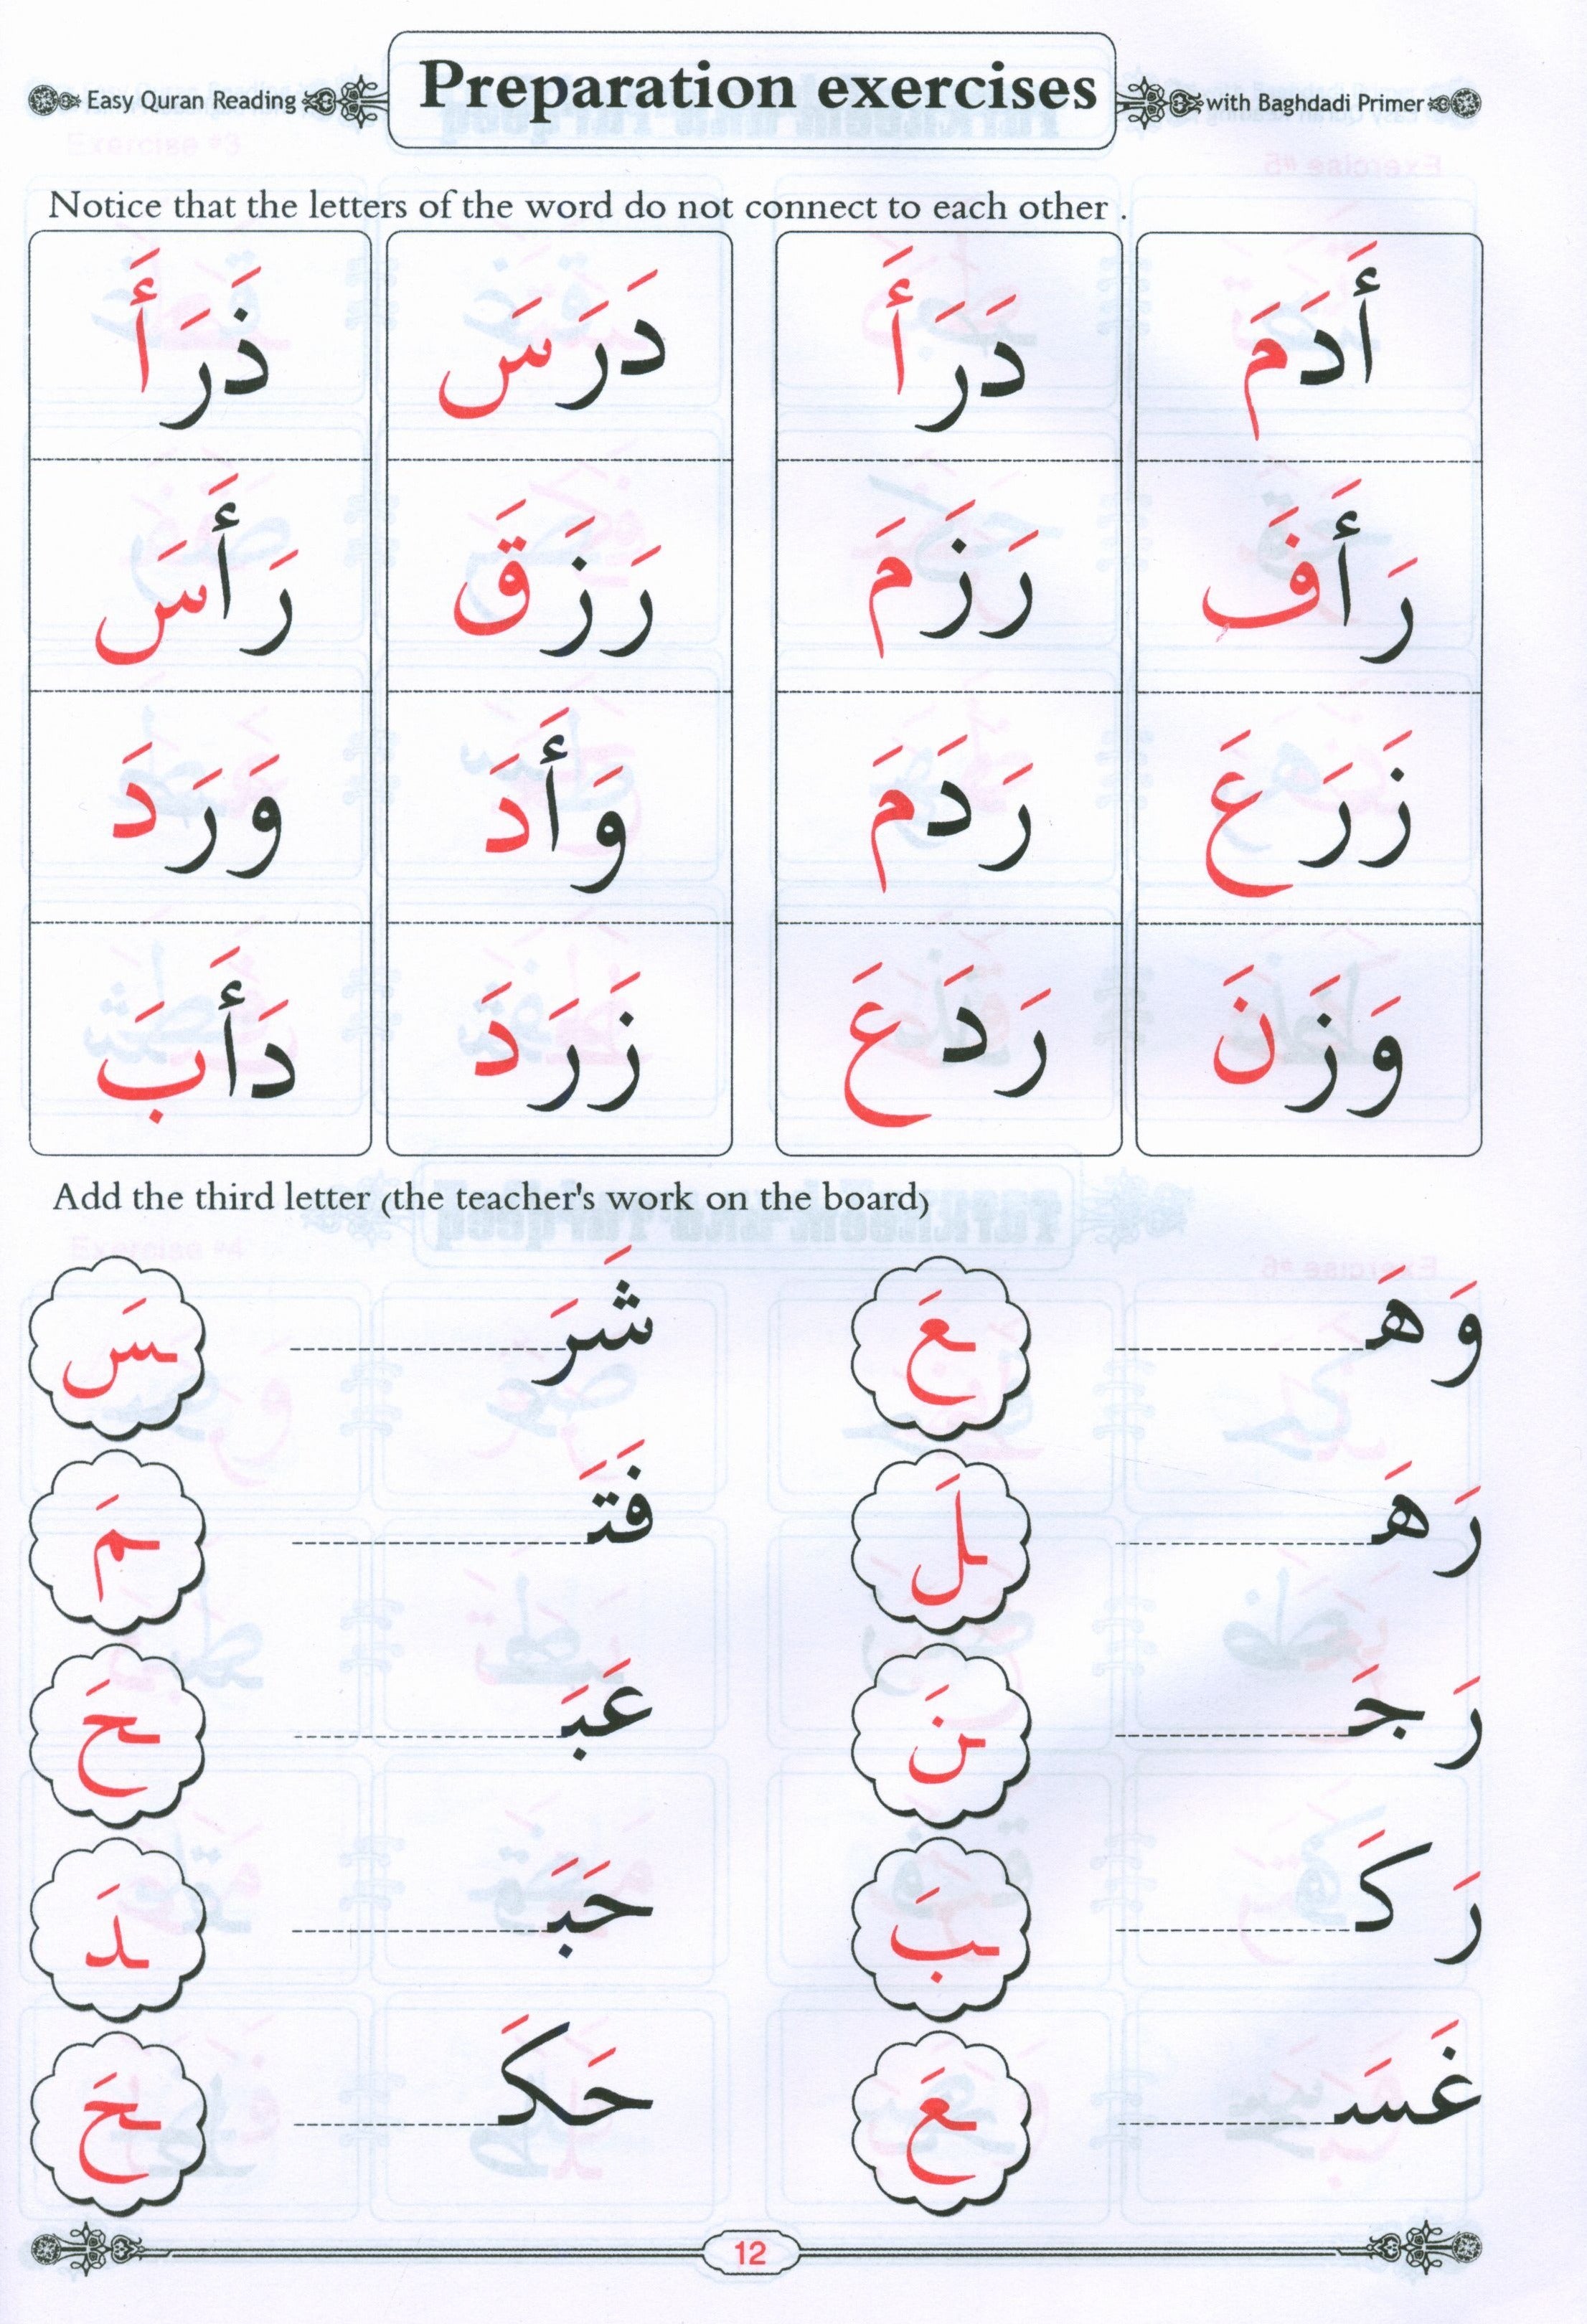 Easy Quran Reading Preparation exercises with Baghdadi Primer
Notice that the letters of the word do not connect to each other .
أَدَمَ دَرَأَ دَرَسَ ذَرَأَ
رَأَفَ رَزَمَ رَزَقَ رَأَسَ
زَرَعَ رَدَمَ وَأَدَ وَرَدَ
وَزَنَ رَدَعَ زَرَدَ دَأَبَ
Add the third letter (the teacher's work on the board)
وَهَـ ـعَ شَرَ ـسَ
رَهَـ ـلَ فَتَـ ـمَ
رَجَـ ـنَ عَبَـ ـحَ
رَكَـ ـبَ حَبَـ ـدَ
غَسَـ ـعَ حَكَـ ـحَ
12